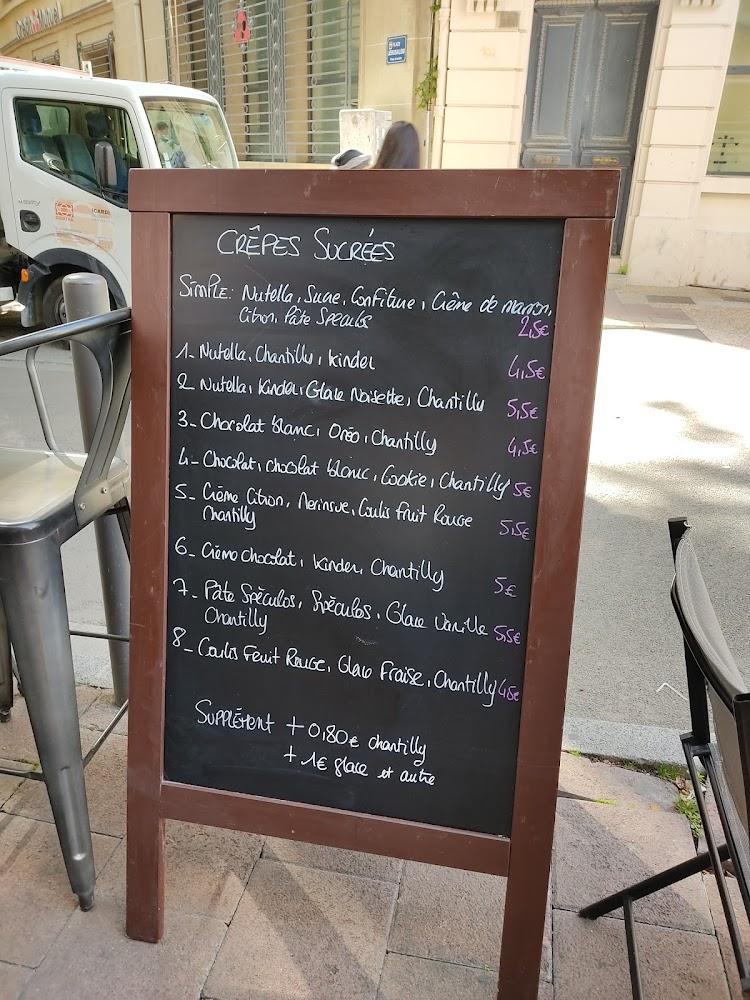 Crédit Mutuel
PLACE
JÉRUSALEM
CRÊPES SUCRÉES
SIMPLE: Nutella, Sucre, Confiture, Crème de marron,
Citron, Pâte Speculos
2,5€
1- Nutella, Chantilly, Kinder 4,5€
2- Nutella, Kinder, Glace Noisette, Chantilly 5,5€
3- Chocolat blanc, Oréo, Chantilly 4,5€
4- Chocolat, chocolat blanc, Cookie, Chantilly 5€
5- Crème Citron, Merinsue, Coulis Fruit Rouge 5,5€
Chantilly
6- Crème chocolat, Kinder, Chantilly 5€
7- Pâte Spéculos, Spéculos, Glace Vanille 5,5€
Chantilly
8- Coulis Fruit Rouge, Glace Fraise, Chantilly
SUPPLÉMENT + 0,80€ chantilly
+ 1€ glace et autre